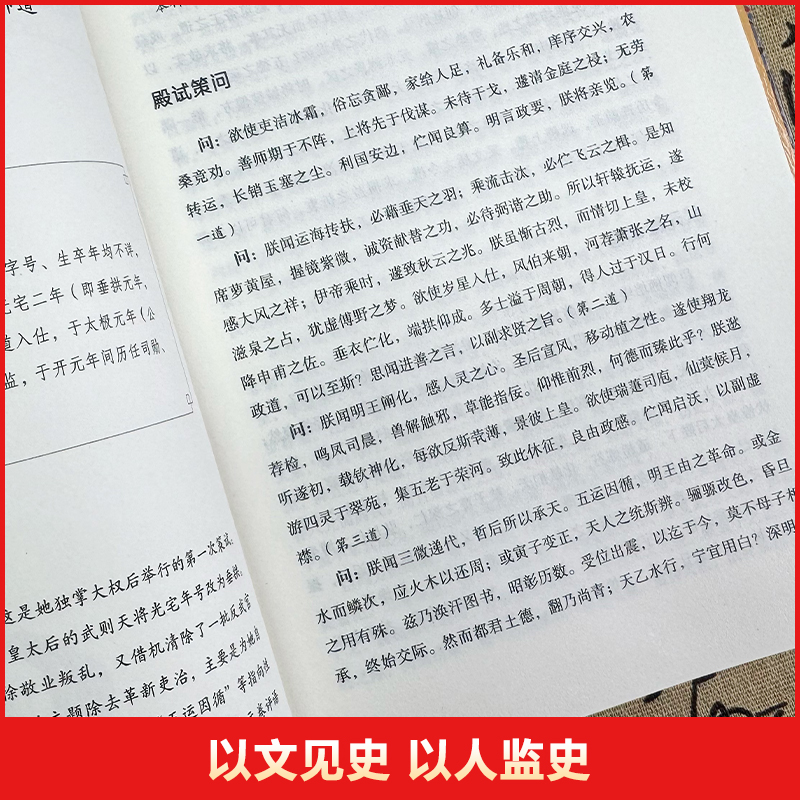 字号、生卒年均不详,
光宅二年(即垂拱元年,
道入仕,于太极元年(公
监,于开元年间历任司勋、
这是她独掌大权后举行的第一次策试,
皇太后的武则天将光宅年号改为垂拱,
徐敬业叛乱,又借机清除了一批反武官
主题除去革新吏治,主要是为她自
五运因循”等指向性
殿试策问
问:欲使吏洁冰霜,俗忘贪鄙,家给人足,礼备乐和,庠序交兴,农
桑竞劝。善师期于不阵,上将先于伐谋。未待干戈,遽清金庭之祲;无劳
转运,长销玉塞之尘。利国安边,伫闻良算。明言政要,朕将亲览。(第
一道)
问:朕闻运海抟扶,必藉垂天之羽;乘流击汰,必伫飞云之楫。是知
席萝黄屋,握镜紫微,诚资献替之功,必待弼谐之助。所以轩辕抚运,遂
感大风之祥;伊帝乘时,遂致秋云之兆。朕虽惭古烈,而情切上皇,未校
滋泉之占,犹虚傅野之梦。欲使岁星入仕,风伯来朝,河荐萧张之名,山
降申甫之佐。垂衣伫化,端拱仰成。多士溢于周朝,得人过于汉日。行何
政道,可以至斯?思闻进善之言,以副求贤之旨。(第二道)
问:朕闻明王阐化,感人灵之心。圣后宣风,移动植之性。遂使翔龙
荐检,鸣凤司晨,兽解触邪,草能指佞。仰惟前烈,何德而臻此乎?朕逖
听遂初,载钦神化,每欲反斯茕薄,景彼上皇。欲使瑞萐司庖,仙蓂候月,
游四灵于翠苑,集五老于荣河。致此休征,良由政感。伫闻启沃,以副虚
襟。(第三道)
问:朕闻三微递代,哲后所以承天。五运因循,明王由之革命。或金
水而鳞次,应火木以还周;或寅子变正,天人之统斯辨。骊骕改色,昏旦
之用有殊。兹乃涣汗图书,昭彰历数。受位出震,以迄于今,莫不母子相
承,终始交际。然而都君土德,翻乃尚青;天乙水行,宁宜用白?深明
以文见史 以人监史